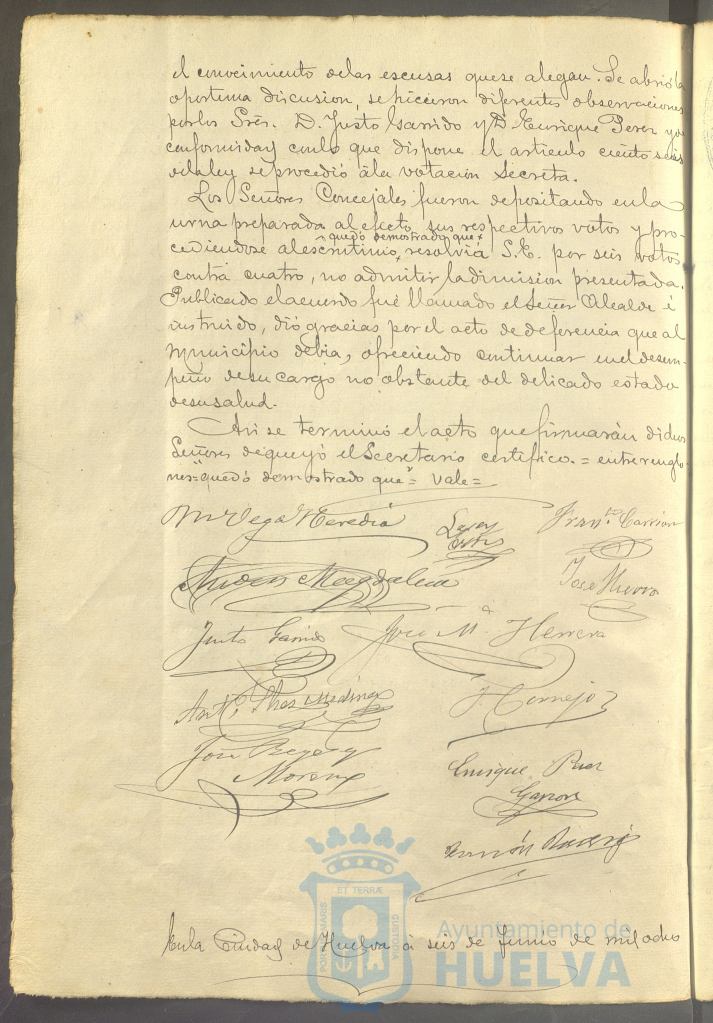 el conocimiento delas escusas quese alegan. Se abrió la
oportuna discusion, se hicieron diferentes observaciones
porlos Srês. D. Justo Garrido y D. Enrique Perez y de
conformidad conlo que dispone el articulo ciento seis
dela ley se procedió ála votacion Secreta.
Los Señores Concejales fueron depositando enla
urna preparada al efecto sus respectivos votos y pro-
quedó demostrado que
cediendose alescrutinio, resolvia S.E. por seis votos
contra cuatro, no admitir ladimision presentada.
Publicado elacuerdo fué llamado el Señor Alcalde é
instruido, dió gracias por el acto de deferencia que al
Municipio debia, ofreciendo continuar enel desem-
peño desu cargo no obstante del delicado estado
desusalud.
Asi se terminó el acto que firmarán dichos
Señores deque yó el Secretario certifico. = entrerenglo-
nes = "quedó demostrado que" = Vale =
M Vega Heredia
Franco Carrion
Magdalena
Jose Hierro
Justo Garrido
Jose Ma Herrera
Anto
Medina
J. Cornejo
José
Moreno
Enrique Perez
Ramón
ET TERRÆ
PORTUS MARIS
CUSTODIA
Ayuntamiento de
HUELVA
Enla Ciudad de Huelva á seis de Junio de mil ocho